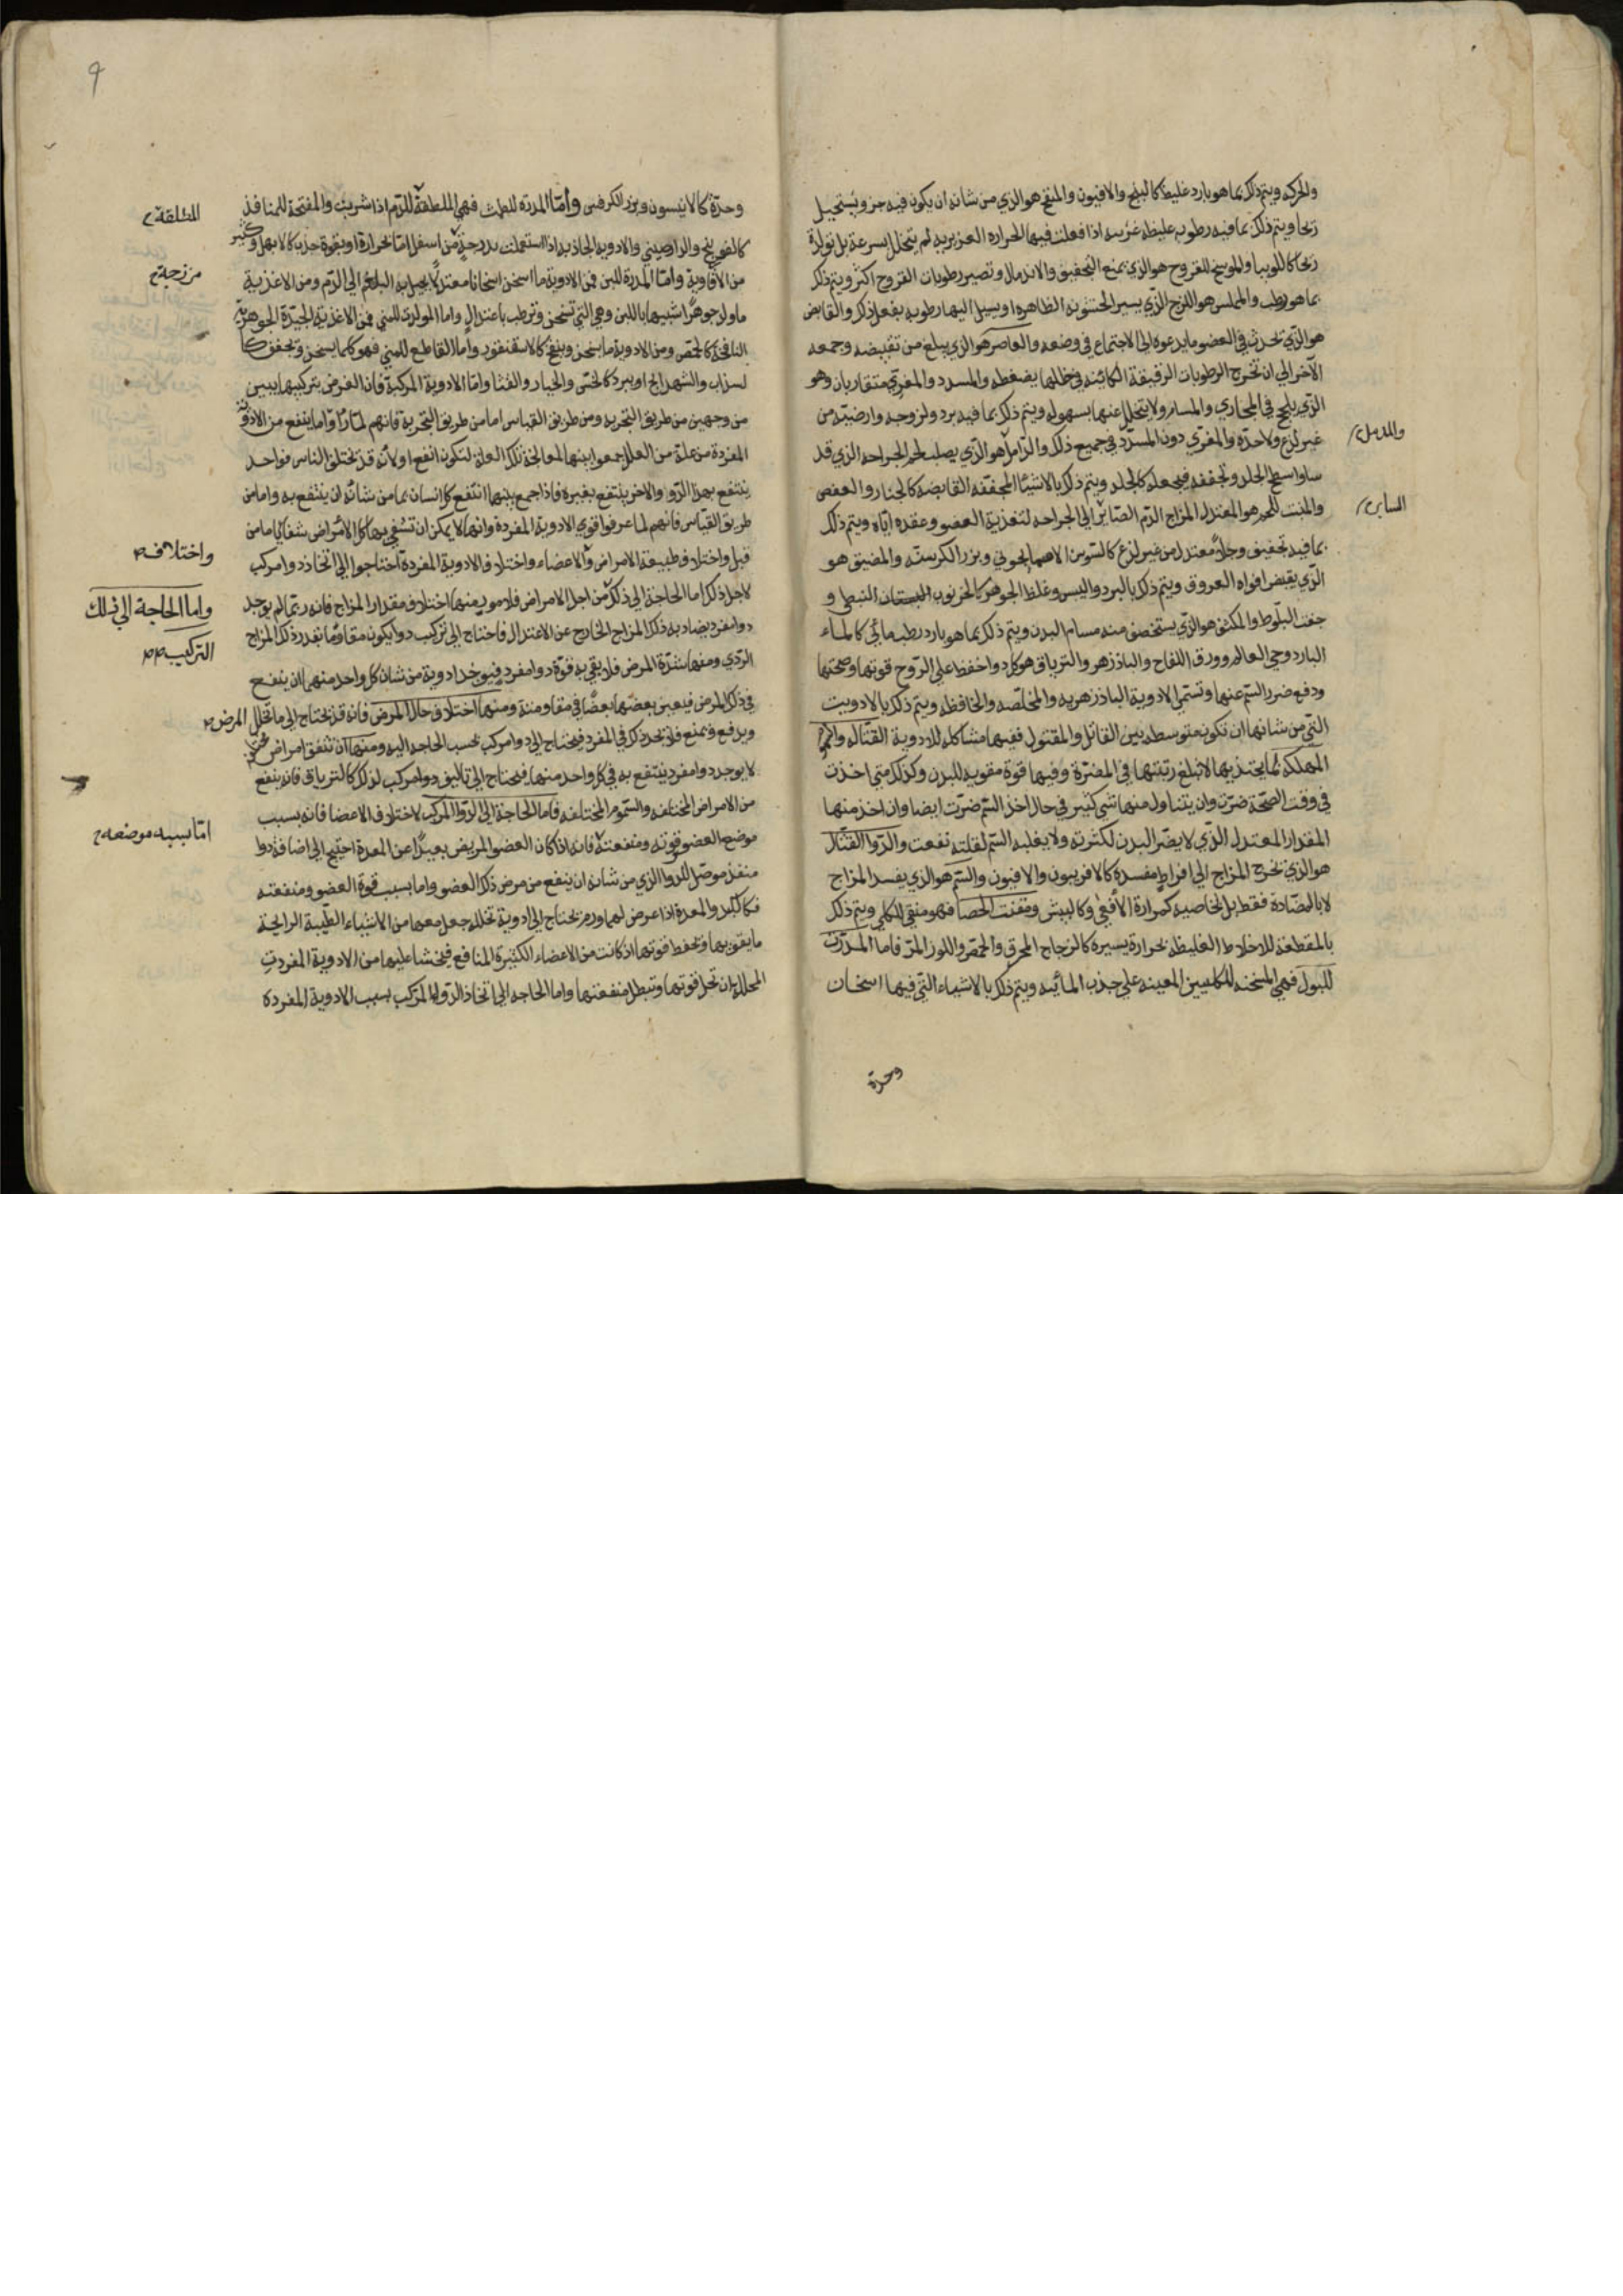 والحركه ويتم ذلك بما هو بارد غليظ كالبنج والافيون والمنفخ هو الذي من شانه ان يكون فيه جزو يستحيل
رىحا ويتم ذلك بما فيه رطوبه غليظه غريبه اذا فعلت فيها الحراره الغريزيه لم يتحلل بسرعة بل تولد
ريحا كاللوبيا والموسخ للقروح هو الذي يمنع التجفيف والاندمال وتصير رطوبات القروح اكثر ويتم ذلك
بما هو رطب والمملس هو اللزج الذي يسير الخشونه الظاهره او يسيل اليها رطوبه بفعل ذلك والقابض
هو الذي يحدث في العضو ما يدعوه الى الاجتماع في وضعه والعاصر هو الذي يبلغ من تقبيضه وجمعه
الآخر الي ان تخرج الرطوبات الرقيقة الكائنه في خللها بضغطه والمسدد والمغري متقاربان وهو
الذي يلحج في المجاري والمسام ولا يتحلل عنها بسهوله ويتم ذلك بما فيه برد ولزوجه وارضيته من
غير لذع ولا حده والمغري دون المسدد في جميع ذلك والدامل هو الذي يصلب لحم الجراحه الذي قد
والمدمل
ساوا سطح الجلد وتجففه فيجعله كالجلد ويتم ذلك بالاشيئا المجففه القابضه كالجلنار والعفص
والمنبت للحم هو المعتدل المزاج الدم الصائر الي الجراحه لتغذية العضو وعقده اياه ويتم ذلك
بما فيه تجفيف وجلا معتدل من غير لذع كالسوسن الاسمانجوني وبزر الكرسنه والمضيق هو
الذي يقبض افواه العروق ويتم ذلك بالبرد واليبس وغلظ الجوهر كالخرنوب النبطي و
جفت البلوط والمكثف هو الذي يستخصف منه مسام البدن ويتم ذلك بما هو بارد رطب مائي كالماء
البارد وحي العالم وورق اللفاح والباذزهر والترياق هو كل دوا حفظ علي الروح قوتها وصحتها
ودفع ضرر السم عنها وتسمي الادوية الباذزهريه والمخلصه والحافظه ويتم ذلك بالادويت
التي من شانها ان تكون متوسطه بين القاتل والمقتول ففيها مشاكله للادوية القتاله
المهلكه لما يجتذبها لا تبلغ رتبتها في المضرة وفيها قوة مقويه للبدن وكذلك متي اخذت
في وقت الصحة ضرت وان يتناول منها شي كثير في حال اخذ السم ضرت ايضا وان اخذ منها
المقدار المعتدل الذي لا يضر البدن لكثرته ولا يغلبه السم لقلته نفعت والدوا القتال
هو الذي تخرج المزاج الي افراط مفسده كالافربيون والافيون والسم هو الذي يفسد المزاج
لا بالمضادة فقط بل بخاصيه كمرارة الافعي وكالبيش ومفتت الحصا فهو منقي للكلي ويتم ذلك
بالمقطعة للاخلاط الغليظه بحرارة يسيره كالزجاج المحرق والحمص واللوز المر فاما المدرت
للبول فهي المسخنه للكليتين المعينه علي جذب المائيه ويتم ذلك بالاشياء التي فيها اسخان
وحدة
وحدة كالانيسون وبزر الكرفس وأما المدره للطمث فهي الملطفة للدم اذا شربت والمفتحة للمنافذ
كالفوتنج والدارصيني والادويه الجاذبه اذا استعملت بدرجة من اسفل اما بحرارة او بقوة جذب كالابهل وكثير
من الافاوية وأما المدرة للبن فمن الادوية ما اسخن اسخانا معتدلا يحيل به البلغم الي الدم ومن الاغذية
مزرجة
ما ولد جوهرا شبيها باللبن وهي التي تسخن وترطب باعتدال واما المولدي للمني فمن الاغذية الجيدة الجوهرية
النافخة كالحمص ومن الادوية ما يسخن وينفخ كالاسقنقور واما القاطع للمني فهو كلما يسخن ويجفف كا
لسذاب والشهدانج او يبرد كالخس والخيار والقثا واما الادوية المركبة فان الغرض بتركيبها يبين
من وجهين من طريق التجربه ومن طريق القياس اما من طريق التجربة فانهم لما رأوا ما ينفع من الادوية
المفردة من علة من العلل جمعوا بينها لمعالجة تلك العلة لتكون انفع او لانه قد يختلف الناس فواحد
ينتفع بهذا الدوا والاخر ينتفع بغيره فاذا جمع بينهما انتفع كل انسان بما من شانه ان ينتفع به واما من
طريق القياس فانهم لما عرفوا قوي الادوية المفردة وانها لا يمكن ان تشفي بها كل الامراض شفا تاما من
قبل واختلاف طبيعة الامراض والاعضاء واختلاف الادوية المفردة احتاجوا الي اتخاذ دوا مركب
واختلاف
لاجل ذلك اما الحاجة الي ذلك من اجل الامراض فلامور منها اختلاف مقدار المزاج فانه ربما لم يوجد
واما الحاجة الي ذلك
التركيب
دوا مفرد يضاد به ذلك المزاج الخارج عن الاعتدال فاحتاج الي تركيب دوا يكون مقاوما بقدر ذلك المزاج
الردي ومنها شدة المرض فلا يفي به قوة دوا مفرد فيوخذ ادوية من شان كل واحد منهما ان ينفع
في ذلك المرض فيعين بعضها بعضا في مقاومته ومنها اختلاف حال المرض فانه قد يحتاج الي ما تحلل
المرض
ويدفع ويمنع فلا نجد ذلك في المفرد فيحتاج الي دوا مركب بحسب الحاجه اليه ومنها ان تتفق امراض
لا يوجد دوا مفرد ينتفع به في كل واحد منها فيحتاج الي تاليف دوا مركب لذلك كالترياق فانه ينفع
من الامراض المختلفه والسموم المختلفه فاما الحاجة الي الدوا المركب لاختلاف الاعضا فانه بسبب
موضع العضو وقوته ومنفعته فانه ان كان العضو المريض بعيدا عن المعدة احتيج الي اضافة دوا
اما بسبب موضعه
منفذ موصل للدوا الذي من شانه ان ينفع من مرض ذلك العضو واما بسبب قوة العضو ومنفعته
فكالكبد والمعدة اذا عرض لهما ورم يحتاج الي ادوية تحلله جعل معها من الاشياء الطيبة الرايحة
ما يقويها ويحفظ قوتها اذ كانت من الاعضاء الكثيرة المنافع فيخشا عليها من الادوية المفردت
المحللة ان تحل قوتها وتبطل منفعتها واما الحاجه الي اتخاذ الدوا المركب بسبب الادوية المفرده